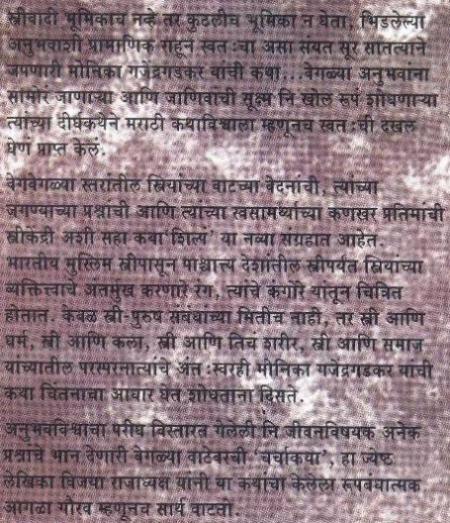 स्त्रीवादी भूमिकाच नव्हे तर कुठलीच भूमिका न घेता, भिडलेल्या
अनुभवाशी प्रामाणिक राहून स्वतःचा असा संयत सूर सातत्याने
जपणारी मोनिका गजेंद्रगडकर यांची कथा...वेगळ्या अनुभवांना
सामोरं जाणाऱ्या आणि जाणिवांची सूक्ष्म नि खोल रूपं शोधणाऱ्या
त्यांच्या दीर्घकथेने मराठी कथाविश्वाला म्हणूनच स्वतःची दखल
घेणं प्राप्त केलं.
वेगवेगळ्या स्तरांतील स्त्रियांच्या वाटच्या वेदनांची, त्यांच्या
जगण्याच्या प्रश्नांची आणि त्यांच्या स्वसामर्थ्याच्या कणखर प्रतिमांची
स्त्रीकेंद्री अशी सहा कथा'शिल्पं' या नव्या संग्रहात आहेत.
भारतीय मुस्लिम स्त्रीपासून पाश्चात्त्य देशांतील स्त्रीपर्यंत स्त्रियांच्या
व्यक्तित्त्वाचे अंतर्मुख करणारे रंग, त्यांचे कंगोरे यांतून चित्रित
होतात. केवळ स्त्री-पुरुष संबंधाच्या मितीच नाही, तर स्त्री आणि
धर्म, स्त्री आणि कला, स्त्री आणि तिचं शरीर, स्त्री आणि समाज
यांच्यातील परस्परनात्यांचे अंतःस्वरही मोनिका गजेंद्रगडकर यांची
कथा चिंतनाचा आधार घेत शोधताना दिसते.
अनुभवविश्वाचा परीघ विस्तारत गेलेली नि जीवनविषयक अनेक
प्रश्नांचे भान देणारी वेगळ्या वाटेवरची 'चर्चाकथा', हा ज्येष्ठ
लेखिका विजया राजाध्यक्ष यांनी या कथांचा केलेला रूपवेधात्मक
आगळा गौरव म्हणूनच सार्थ वाटतो.